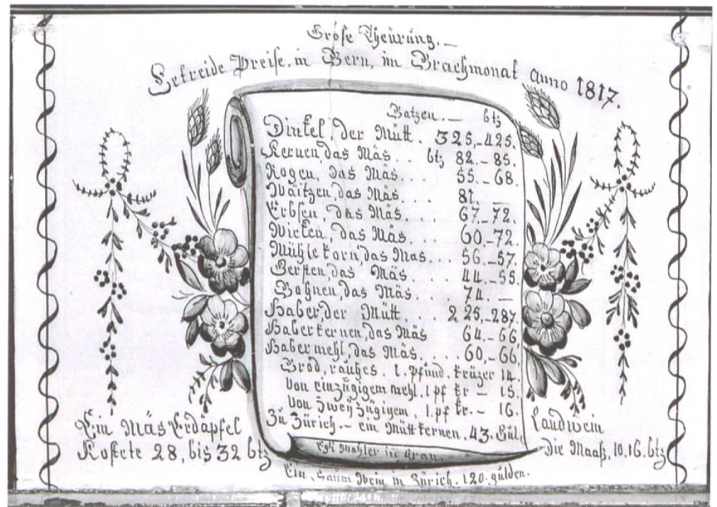 Große Theürung.
Getreide Preise, in Bern, im Brachmonat anno 1817.
Batzen. — btz
Dinkel, der Mütt. 325.–425.
Kernen, das Mäs. . . btz 82.–85.
Rogen, das Mäs. . . . 55.–68.
Wäitzen, das Mäs. 81.
Erbsen, das Mäs. . . . 67.–72.
Wicken, das Mäs. . . . 60.–72.
Mühlekorn, das Mas. . . 56.–57.
Gersten, das Mäs. . . 44.–55.
Bohnen, das Mäs. . . 74. —
Haber, der Mütt . . 225.–287.
Haberkernen, das Mäs 64.–66
Habermehl, das Mäs. . . . 60.–66
Brod, rauhes. 1. pfünd. krüzer 14.
Von einzügigem mehl, 1 pf kr — 15.
Von zweÿzügigem, 1. pf kr. — 16.
Zu Zürich. — ein Mütt kernen, 43. Gül.
Ein Mäs Erdapfel
Kostete 28, bis 32 btz
Landwein
die Maaß, 10, 16. btz
Mahler in
Ein Saum Wein in Zürich. 120. gülden.